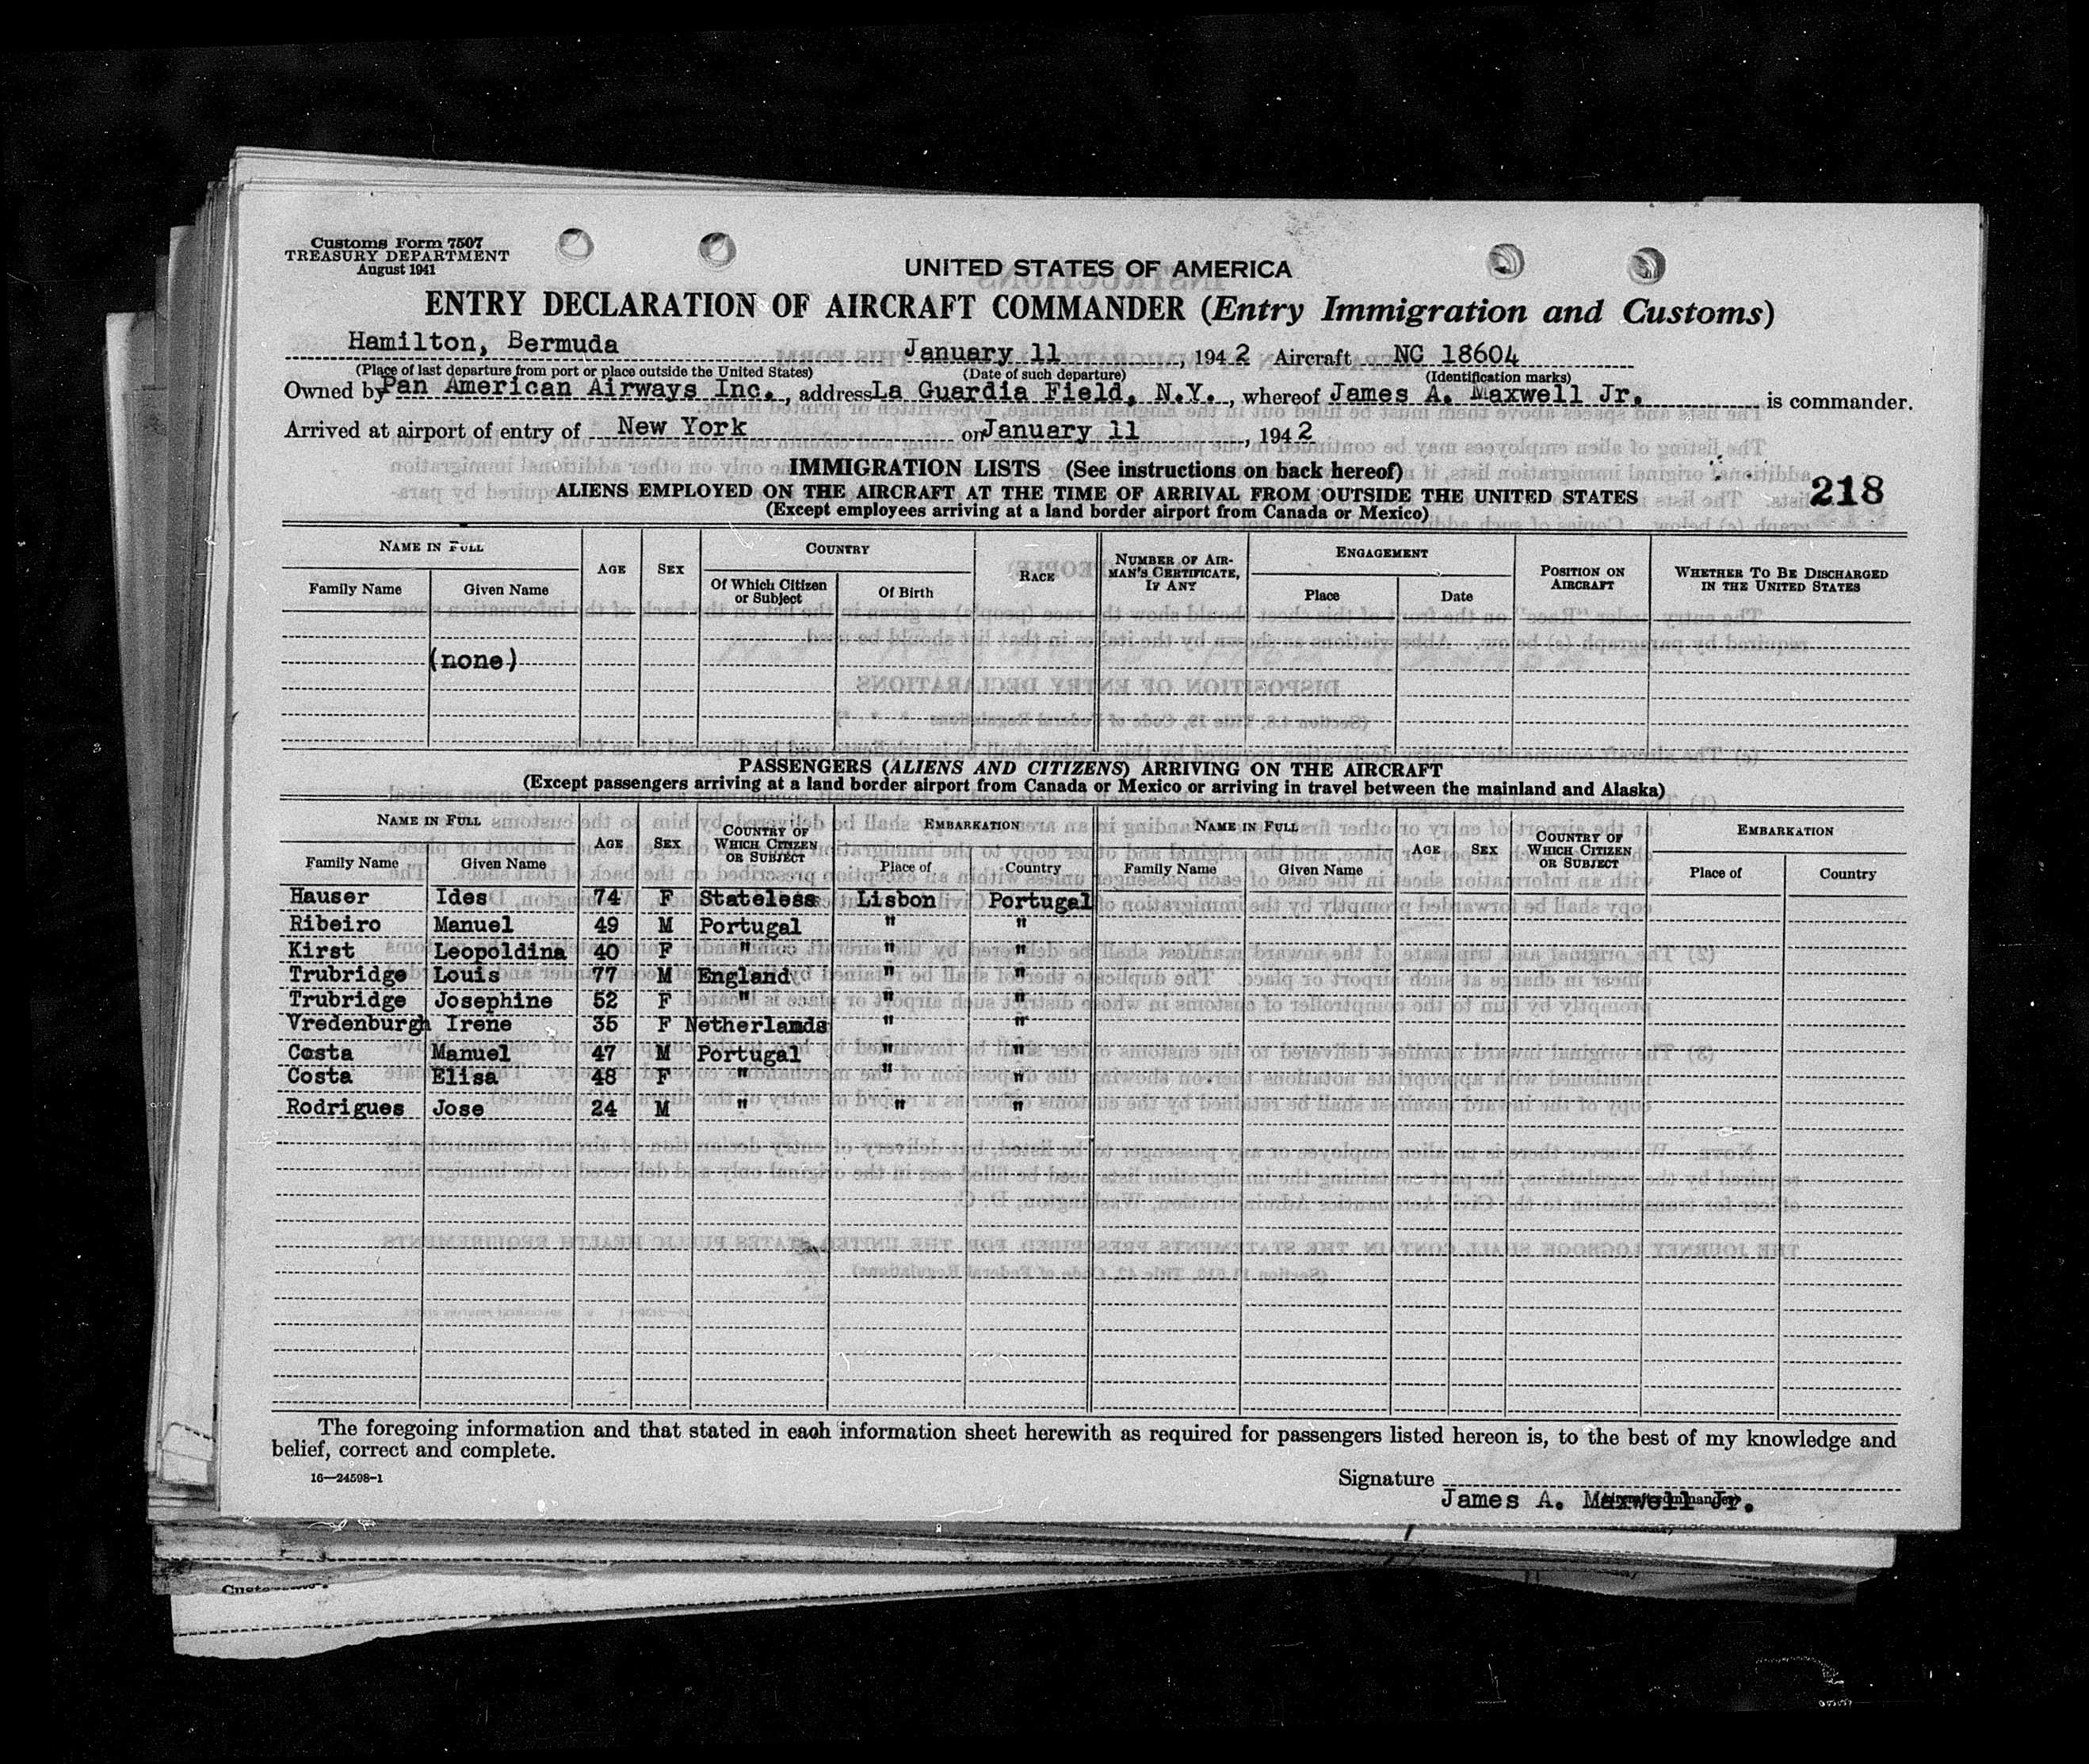 Customs Form 7507
TREASURY DEPARTMENT
August 1941
UNITED STATES OF AMERICA
ENTRY DECLARATION OF AIRCRAFT COMMANDER (Entry Immigration and Customs)
Hamilton, Bermuda January 11, 1942 Aircraft NC 18604
(Place of last departure from port or place outside the United States) (Date of such departure) (Identification marks)
Owned by Pan American Airways Inc., address La Guardia Field, N.Y., whereof James A. Maxwell Jr. is commander.
Arrived at airport of entry of New York on January 11, 1942
IMMIGRATION LISTS (See instructions on back hereof)
218
ALIENS EMPLOYED ON THE AIRCRAFT AT THE TIME OF ARRIVAL FROM OUTSIDE THE UNITED STATES
(Except employees arriving at a land border airport from Canada or Mexico)
NAME IN FULL AGE SEX COUNTRY RACE NUMBER OF AIRMAN'S CERTIFICATE, IF ANY ENGAGEMENT POSITION ON AIRCRAFT WHETHER TO BE DISCHARGED IN THE UNITED STATES
Family Name Given Name Of Which Citizen or Subject Of Birth Place Date
(none)
PASSENGERS (ALIENS AND CITIZENS) ARRIVING ON THE AIRCRAFT
(Except passengers arriving at a land border airport from Canada or Mexico or arriving in travel between the mainland and Alaska)
NAME IN FULL AGE SEX COUNTRY OF WHICH CITIZEN OR SUBJECT EMBARKATION NAME IN FULL AGE SEX COUNTRY OF WHICH CITIZEN OR SUBJECT EMBARKATION
Family Name Given Name Place of Country Family Name Given Name Place of Country
Hauser Ides 74 F Stateless Lisbon Portugal
Ribeiro Manuel 49 M Portugal " "
Kirst Leopoldina 40 F " " "
Trubridge Louis 77 M England " "
Trubridge Josephine 52 F " " "
Vredenburgh Irene 35 F Netherlands " "
Costa Manuel 47 M Portugal " "
Costa Elisa 48 F " " "
Rodrigues Jose 24 M " " "
The foregoing information and that stated in each information sheet herewith as required for passengers listed hereon is, to the best of my knowledge and
belief, correct and complete.
16—24598-1
Signature
James A. Maxwell Jr.